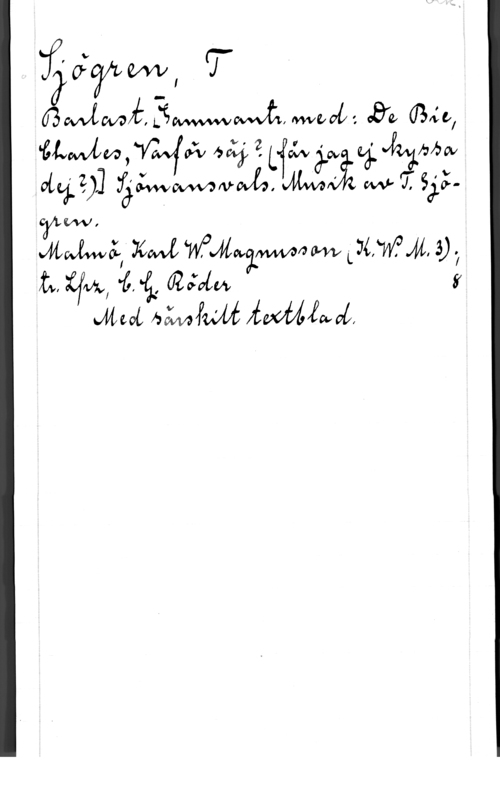 Sjögren, T
Barlast. [Sammantr. med: De Bie,
Charles, Varför säj? (får jag ej kyssa
dej?)] Sjömansvals. Musik av T. Sjö-
gren.
Malmö, Karl W. Magnusson (K. W. M. 3);
tr. Lpz, C. G. Röder 8
Med särskilt textblad.